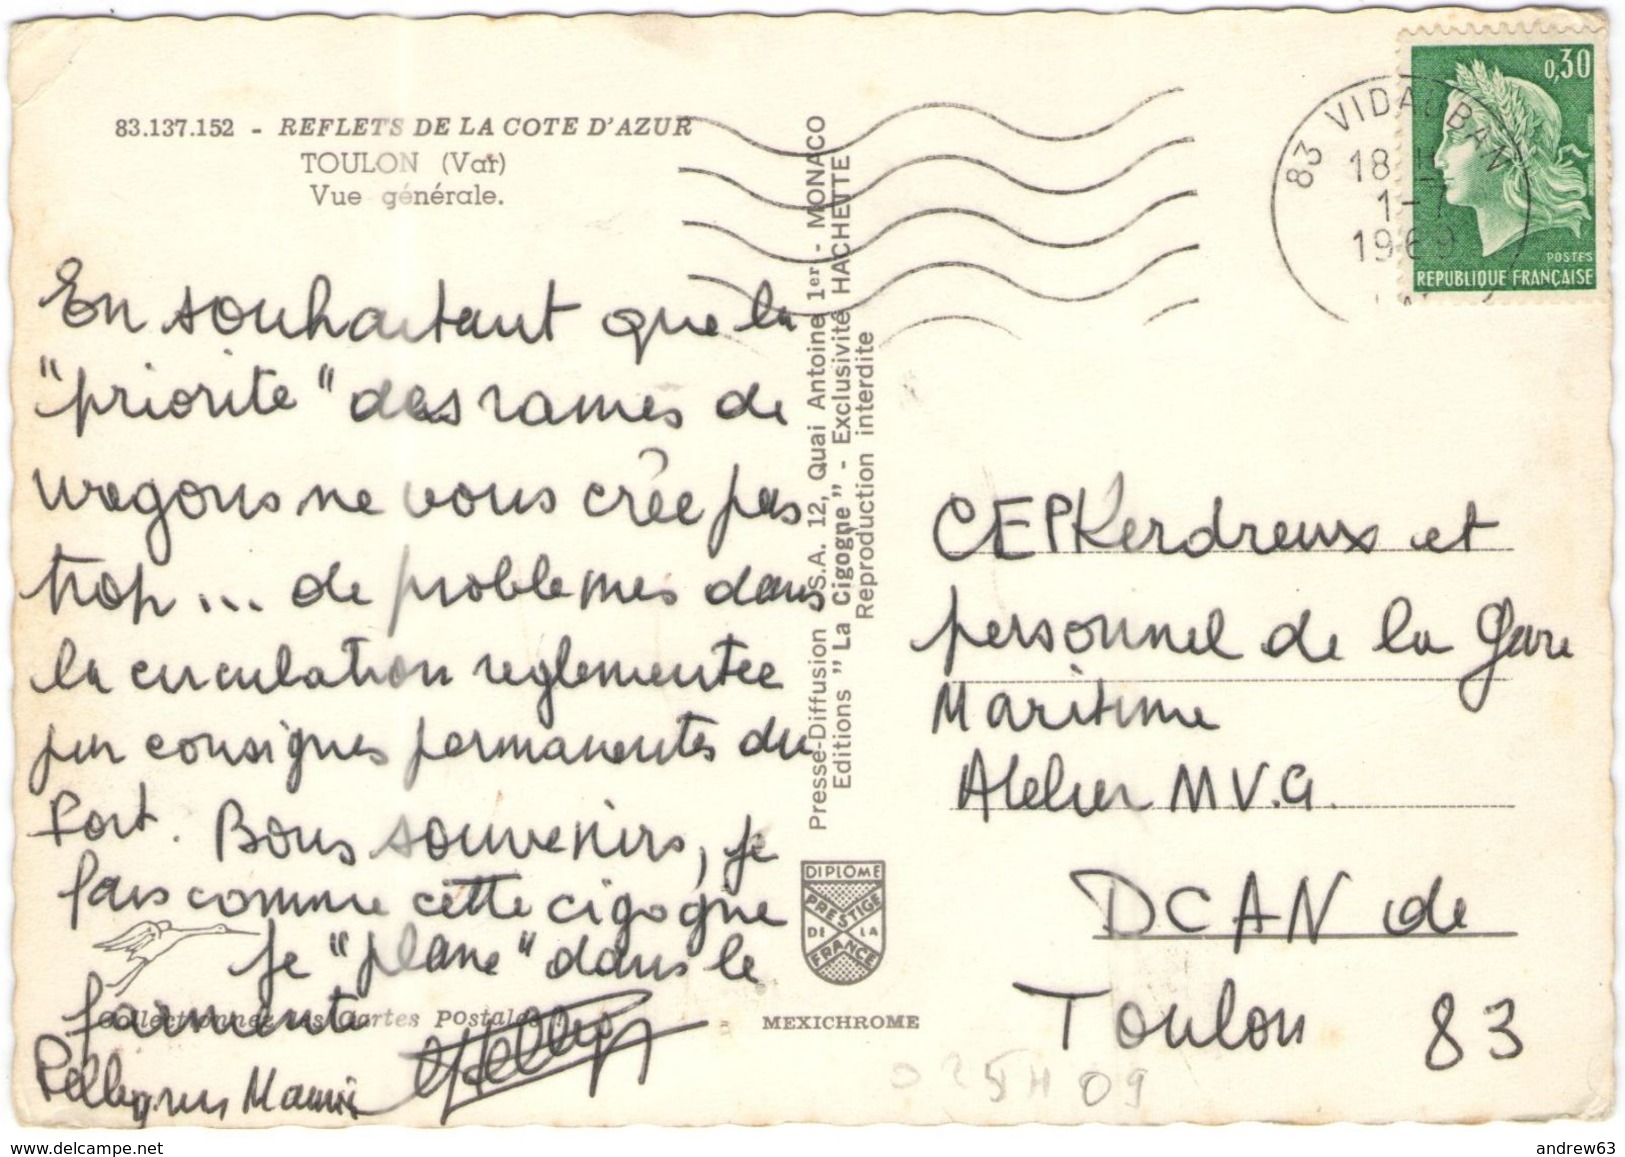 83.137.152 - REFLETS DE LA COTE D'AZUR
TOULON (Var)
Vue générale.
En souhaitant que la
"priorité" des rames de
wagons ne vous crée pas
trop... de problèmes dans
la circulation reglementée
par consignes permanentes du
Port. Bons souvenirs, je
fais comme cette cigogne
je "plane" dans le
farniente
Collectionnez les Cartes Postales
Presse-Diffusion S.A. 12, Quai Antoine 1er - MONACO
Editions "La Cigogne" - Exclusivité HACHETTE
Reproduction interdite
DIPLOME
PRESTIGE
DE LA
FRANCE
MEXICHROME
83 VIDAUBAN
18
1-7
1969
0,30
POSTES
REPUBLIQUE FRANÇAISE
CEP Kerdreux et
personnel de la Gare
Maritime
Atelier M.V.G.
DCAN de
Toulon 83
www.delcampe.net
andrew63